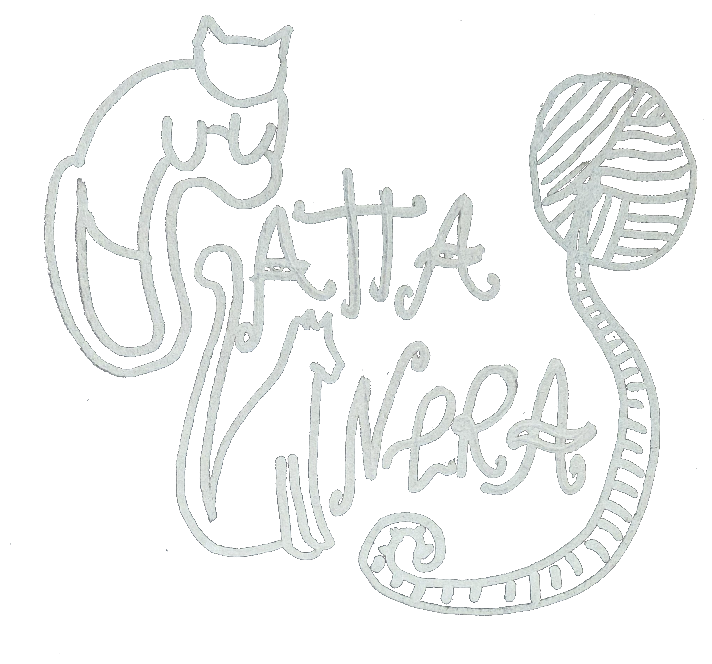 GATTA
NERA